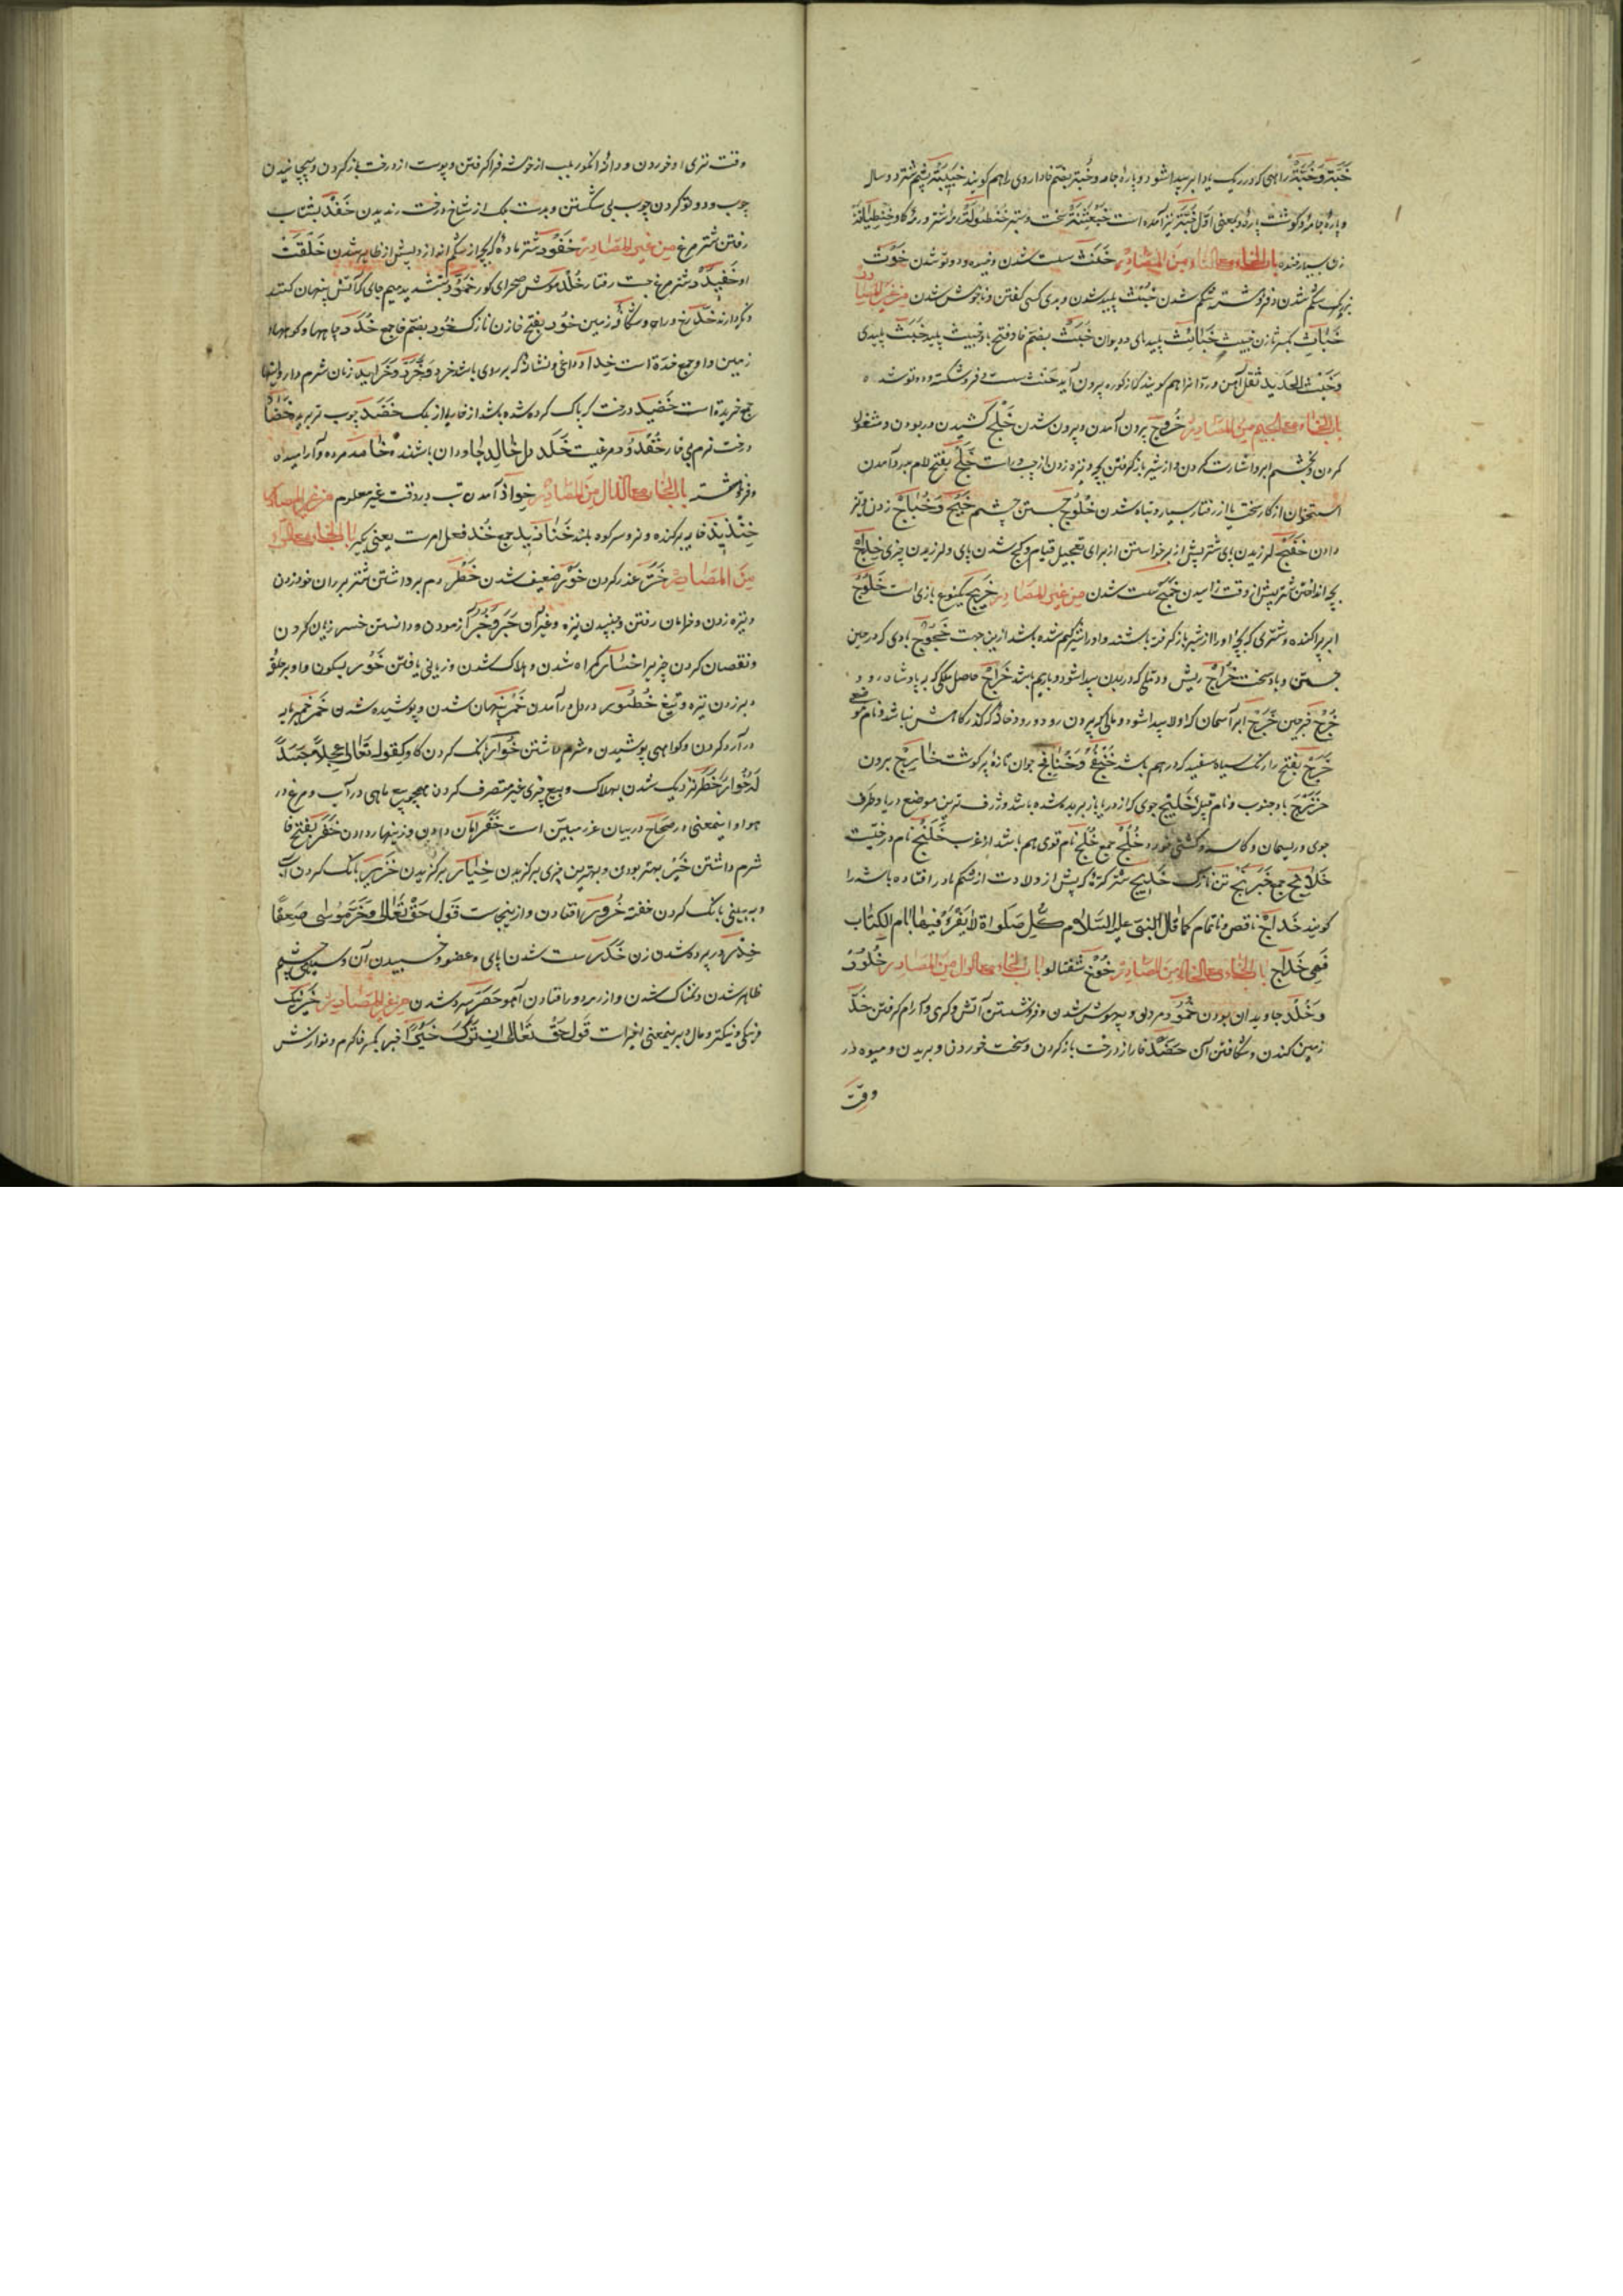 خبّة وخُبّة راهی که در ریک یا در ابر پیدا شود و پارهٔ جامه و خُبّة بضم خا داروی را هم کویند خبیبة پشم شتر دو سال
و پارهٔ جامه و کوشت پاره و بمعنی اول خبّة نیز آمده است
زن بسیار خنده باب الخاء مع الثاء من المصادر خنث سست شدن و خمیده و دوتو شدن خوث
بزرک شکم شدن و فروهشته شکم شدن خبث پلید شدن و بدی کسی کفتن و ناخوش شدن من غیر المصادر
خباث بکسر ثا زن خبیث خبائث پلیدهای و دیوان خبث بضم خا و فتح با خبیث پلید خبث پلیدی
و خبث الحدید ثقل آهن و ریم آنرا هم کویند که از کوره بیرون آید خنث سست و فروشکسته و دوتو شده
باب الخاء مع الجیم من المصادر خروج برون آمدن و بیرون شدن خلج کشیدن و ربودن و مشغول
کردن و بچشم و ابرو اشارت کردن و از شیر باز کرفتن بچه و نیزه زدن از چپ و راست خلج بفتح لام بدرد آمدن
استخوان از کار سخت یا از رفتار بسیار و تباه شدن خلوج جستن چشم خبج و خباج زدن و تیز
دادن خفج لرزیدن پای شتر پیش از برخواستن از برای تعجیل قیام و کج شدن پای و لرزیدن چیزی خداج
بچه انداختن شتر پیش از وقت زاییدن خمج سست شدن من غیر المصادر خریج یکنوع بازی است خلوج
ابر پراکنده و شتری که بچهٔ او را از شیر باز کرفته باشند و او را شیر کم شده باشد ازین جهت خجوج بادی که در حین
جستن و باد سخت خراج ریش و دنبلی که در بدن پیدا شود و با ریم باشد خراج حاصل ملکی که به پادشاه رود
خرج خرجین خرج ابر آسمان که اول پیدا شود و مالی که بیرون رود و رودخانه که کذرکاهش نباشد و نام موضع
خرج بفتح را رنک سیاه سفید که در هم باشد خنفج و خنافج جوان تازهٔ پر کوشت خارج برون
خزرج باد جنوب و نام قبیله خلیج جوی که از دریا باز بریده شده باشد و ژرف ترین موضع دریا و طرف
جوی و ریسمان و کاسه و کشتی خورد خلج جمع خلج نام قومی هم باشد از عرب خلنج نام درختیست
خلانج جمع خبرنج تن نازک خدیج شتر کرهٔ که پیش از ولادت از شکم مادر افتاده باشد و را
کویند خداج ناقص و ناتمام کما قال النبی علیه السلام کل صلواة لا یقرؤ فیها بام الکتاب
فهی خداج باب الخاء مع الخاء من المصادر خوخ شفتالو باب الخاء مع الدال من المصادر خلود
و خلد جاویدان بودن خمود مردن و بیهوش شدن و فرونشستن آتش و کرمی و آرام کرفتن خدّ
زمین کندن و شکافتن آن خضد خار از درخت باز کردن و سخت خوردن و بریدن و میوه در
وقت
وقت تری او خوردن و دانهٔ انکور بلب از خوشه فراکرفتن و پوست از درخت باز کردن و پیچانیدن
چوب و دوتو کردن چوب بی شکستن و بدست برک از شاخ درخت رندیدن خفد بشتاب
رفتن شتر مرغ من غیر المصادر خفود شتر مادهٔ که بچه از شکم اندازد پیش از ظاهر شدن خلقت
او خفیدد شتر مرغ جست رفتار خلد موش صحرای کور خمود بتشدید میم جای که آتش پنهان کنند
و نکهدارند خد رخ و راه و شکاف زمین خود بفتح خا زن نازک خود بضم خا جمع خدد چاهها و کوهها
زمین و او جمع خدة است خداد داغی و نشانه که بر روی باشد خرد و خرد و خراید زنان شرم دار و اینها
جمع خریدة است خضید درخت که پاک کرده شده باشد از خار یا از برک خضد چوب تر بریده خضاد
درخت نرم بی خار خفدود مرغیست خلد دل خالد جاودان باشنده خامد مرده و آرامیده
و فرونشسته باب الخاء مع الذال من المصادر خواذ آمدن تب در وقت غیر معلوم من غیر المصادر
خنذیذ خایه برکنده و نر و سر کوه بلند خناذید جمع خذ فعل امرست یعنی بکیر باب الخاء مع الراء
من المصادر ختر غدر کردن خور ضعیف شدن خطر دم برداشتن شتر بر ران خود زدن
و نیزه زدن و خرامان رفتن و جنبیدن نیزه و غیر آن خبر و خبر آزمودن و دانستن خسر زیان کردن
و نقصان کردن چیز را خسار کمراه شدن و هلاک شدن و زیانی یافتن خور بسکون واو بر حلق
دبر زدن نیزه و تیغ خطور در دل درآمدن خمر پنهان شدن و پوشیده شدن خمر خمیر مایه
در آرد کردن و کواهی پوشیدن و شرم داشتن خوار بانک کردن کاو کقوله تعالی عجلا جسدا
له خوار خطر نزدیک شدن بهلاک و بیع چیزی غیر متصرف کردن همچو بیع ماهی در آب و مرغ در
هوا و اینمعنی در صحاح در بیان غرر مبین است خفر امان دادن و زینهار دادن خفر بفتح فا
شرم داشتن خیر بهتر بودن و بهترین چیزی برکزیدن خیار برکزیدن خریر بانک کردن آب
و به بینی بانک کردن خفته خرور افتادن و ازینجاست قول حق تعالی و خر موسی صعقا
خدر در پرده شدن زن خدر سست شدن پای و عضو و خسبیدن آن و سبکی چشم
ظاهر شدن و نمناک شدن و از رمه دور افتادن آهو خصر سرد شدن من غیر المصادر خیر نیک
و نیکی و نیکتر و مال و برینمعنی اخیراست قول حق تعالی ان ترک خیرا خیر بکسر خا کرم و نوازش